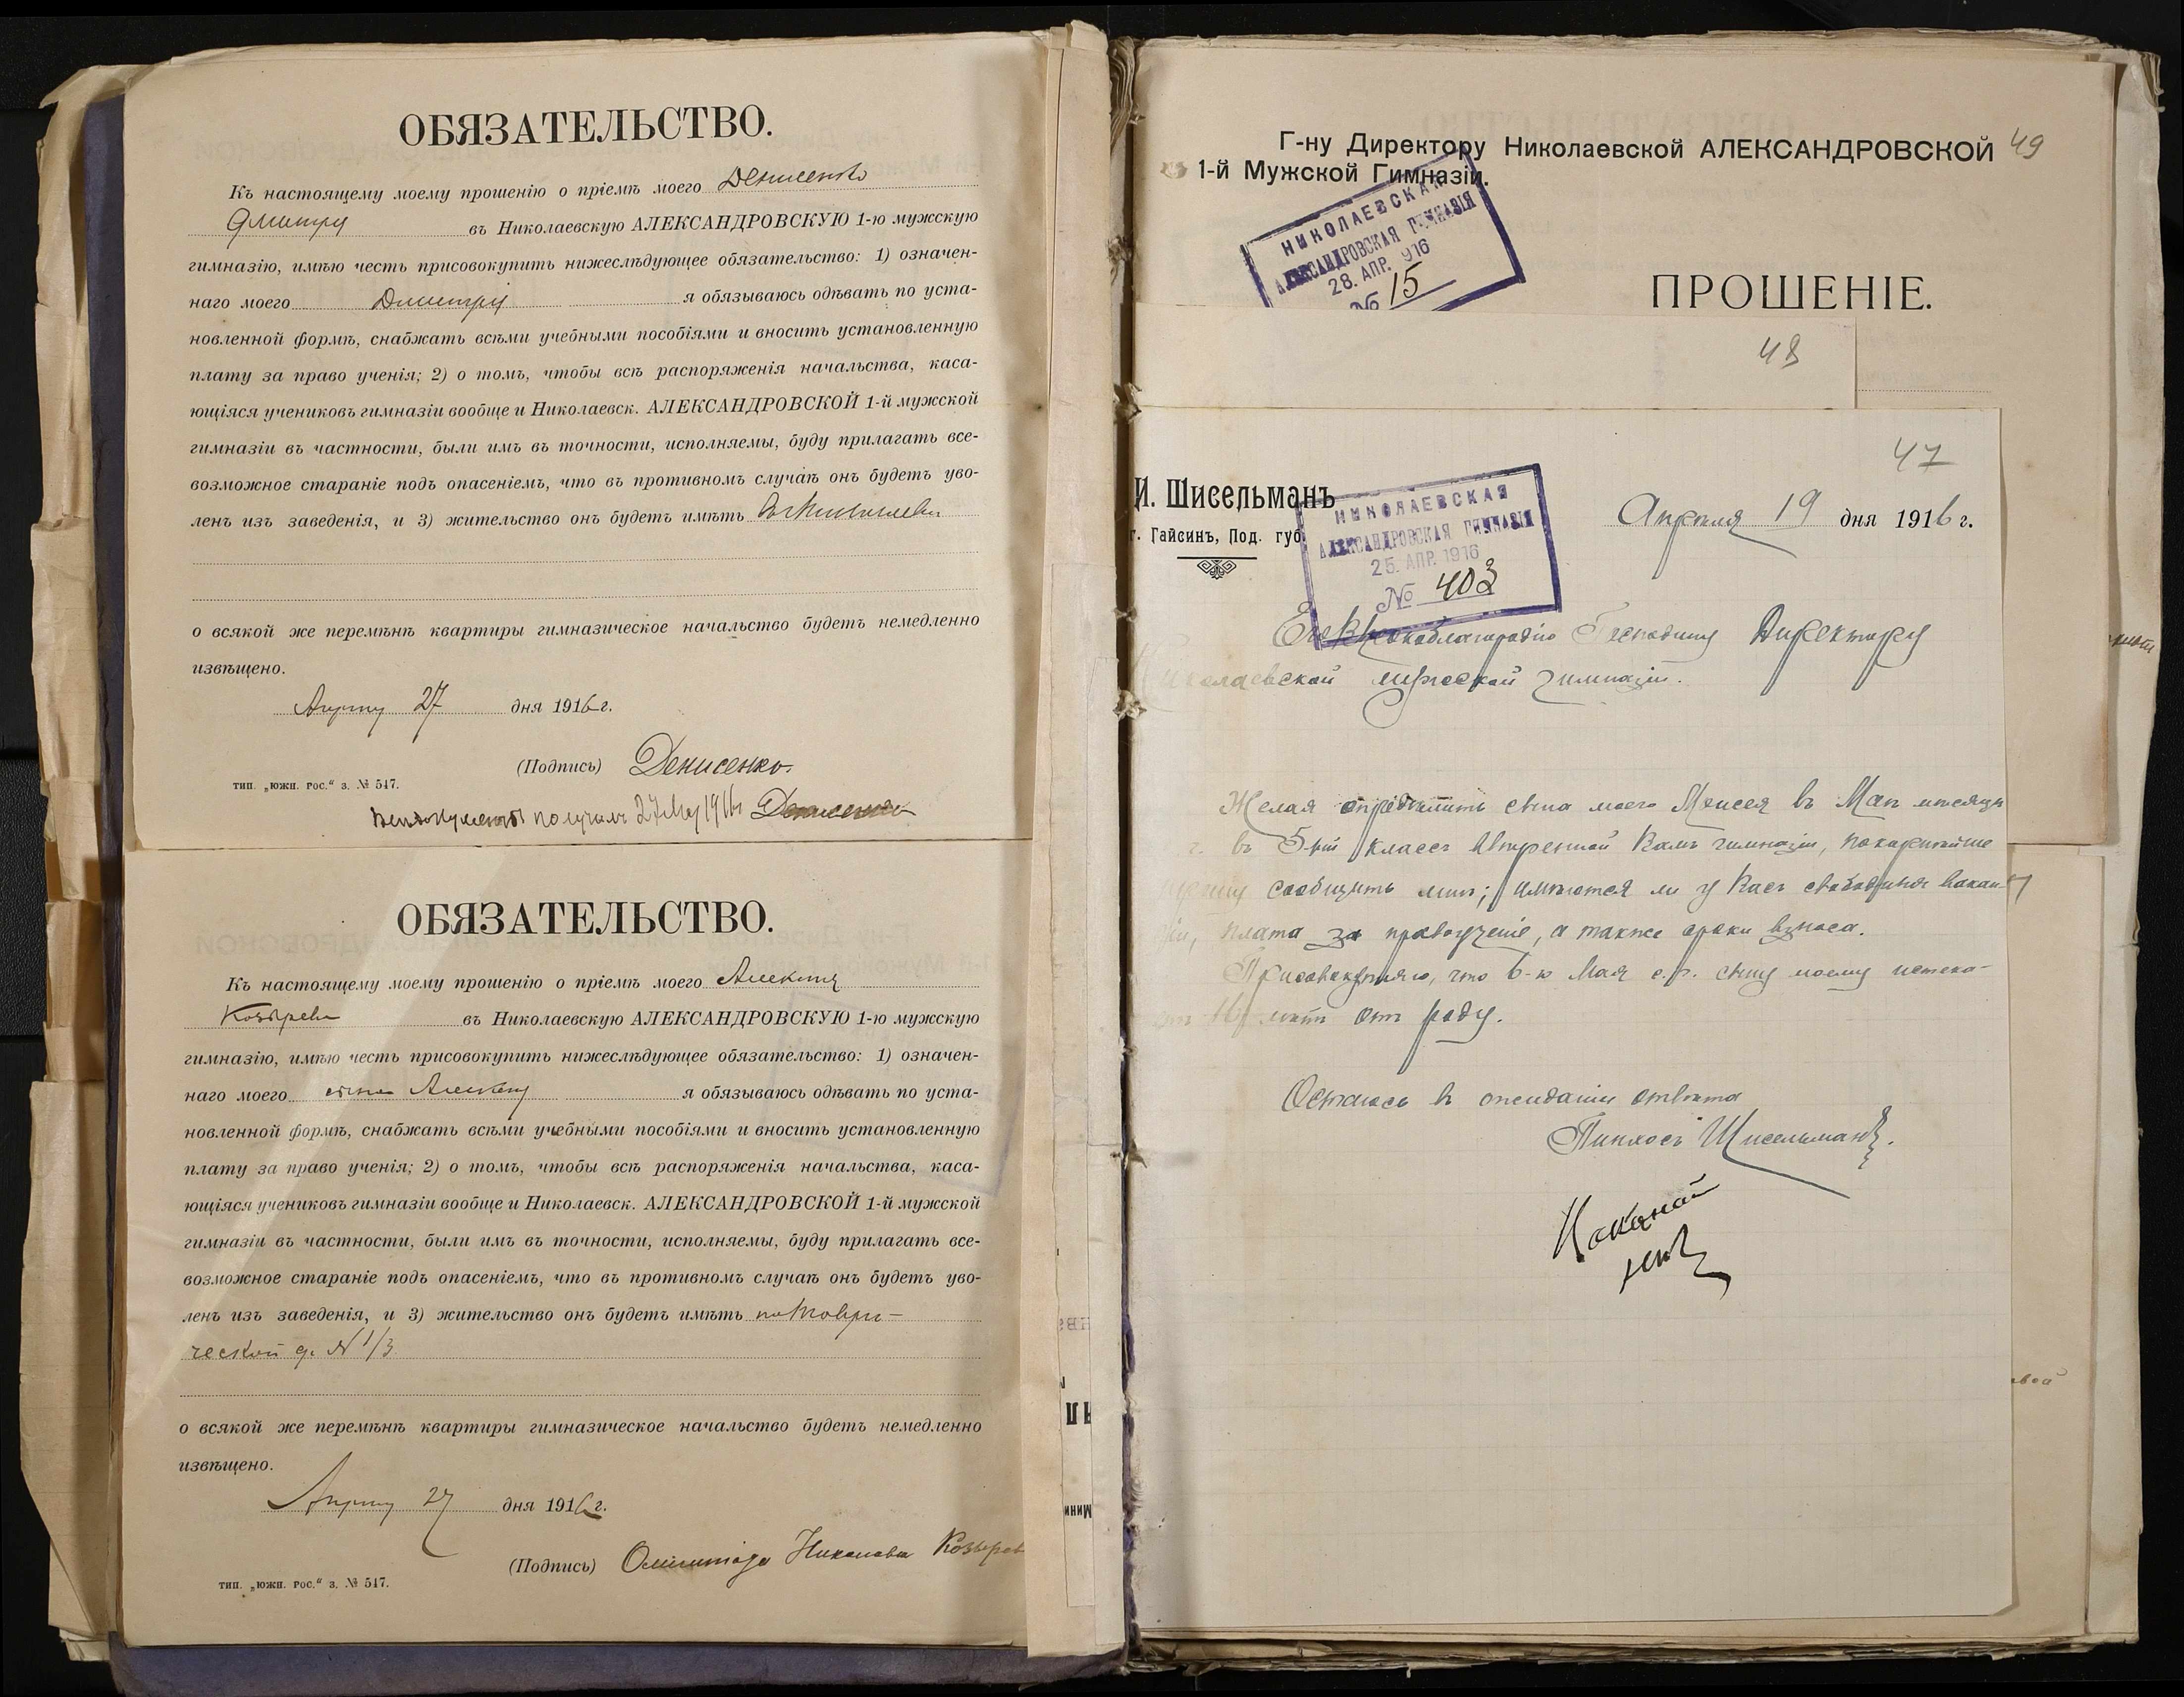 ОБЯЗАТЕЛЬСТВО.
Къ настоящему моему прошенію о пріемѣ моего Денисенко
Дмитрія въ Николаевскую АЛЕКСАНДРОВСКУЮ 1-ю мужскую
гимназію, имѣю честь присовокупить нижеслѣдующее обязательство: 1) означен-
наго моего Дмитрія я обязываюсь одѣвать по уста-
новленной формѣ, снабжать всѣми учебными пособіями и вносить установленную
плату за право ученія; 2) о томъ, чтобы всѣ распоряженія начальства, каса-
ющіяся учениковъ гимназіи вообще и Николаевск. АЛЕКСАНДРОВСКОЙ 1-й мужской
гимназіи въ частности, были имъ въ точности, исполняемы, буду прилагать все-
возможное стараніе подъ опасеніемъ, что въ противномъ случаѣ онъ будетъ уво-
ленъ изъ заведенія, и 3) жительство онъ будетъ имѣть
о всякой же перемѣнѣ квартиры гимназическое начальство будетъ немедленно
извѣщено.
Апрѣля 27 дня 1916 г.
(Подпись) Денисенко.
тип. „южн. рос.“ з. № 547.
документы получилъ 27 1916 Денисенко
ОБЯЗАТЕЛЬСТВО.
Къ настоящему моему прошенію о пріемѣ моего Алексѣя
Козырева въ Николаевскую АЛЕКСАНДРОВСКУЮ 1-ю мужскую
гимназію, имѣю честь присовокупить нижеслѣдующее обязательство: 1) означен-
наго моего сына Алексѣя я обязываюсь одѣвать по уста-
новленной формѣ, снабжать всѣми учебными пособіями и вносить установленную
плату за право ученія; 2) о томъ, чтобы всѣ распоряженія начальства, каса-
ющіяся учениковъ гимназіи вообще и Николаевск. АЛЕКСАНДРОВСКОЙ 1-й мужской
гимназіи въ частности, были имъ въ точности, исполняемы, буду прилагать все-
возможное стараніе подъ опасеніемъ, что въ противномъ случаѣ онъ будетъ уво-
ленъ изъ заведенія, и 3) жительство онъ будетъ имѣть по Таври-
ческой д. № 1/3
о всякой же перемѣнѣ квартиры гимназическое начальство будетъ немедленно
извѣщено.
Апрѣля 27 дня 1916 г.
(Подпись) Николаевна Козырев
тип. „южн. рос.“ з. № 547.
Г-ну Директору Николаевской АЛЕКСАНДРОВСКОЙ 49
1-й Мужской Гимназіи.
НИКОЛАЕВСКАЯ
АЛЕКСАНДРОВСКАЯ ГИМНАЗІЯ
28. АПР. 916
№ 15
ПРОШЕНІЕ.
48
47
И. Шисельманъ
г. Гайсинъ, Под. губ.
НИКОЛАЕВСКАЯ
АЛЕКСАНДРОВСКАЯ ГИМНАЗІЯ
25. АПР. 1916
№ 403
Апрѣля 19 дня 1916 г.
Его Высокоблагородію Господину Директору
Николаевской мужской гимназіи.
Желая опредѣлить сына моего Моисея въ Маѣ мѣсяцѣ
г. въ 5-ый классъ ввѣренной Вамъ гимназіи, покорнѣйше
прошу сообщить мнѣ; имѣются ли у Васъ свободныя вакан-
сіи, плата за правоученіе, а также сроки взноса.
Присовокупляю, что 6-го Мая с.г. сыну моему истека-
лѣтъ отъ роду.
Остаюсь въ ожиданіи отвѣта
Пинхосъ Шисельманъ.